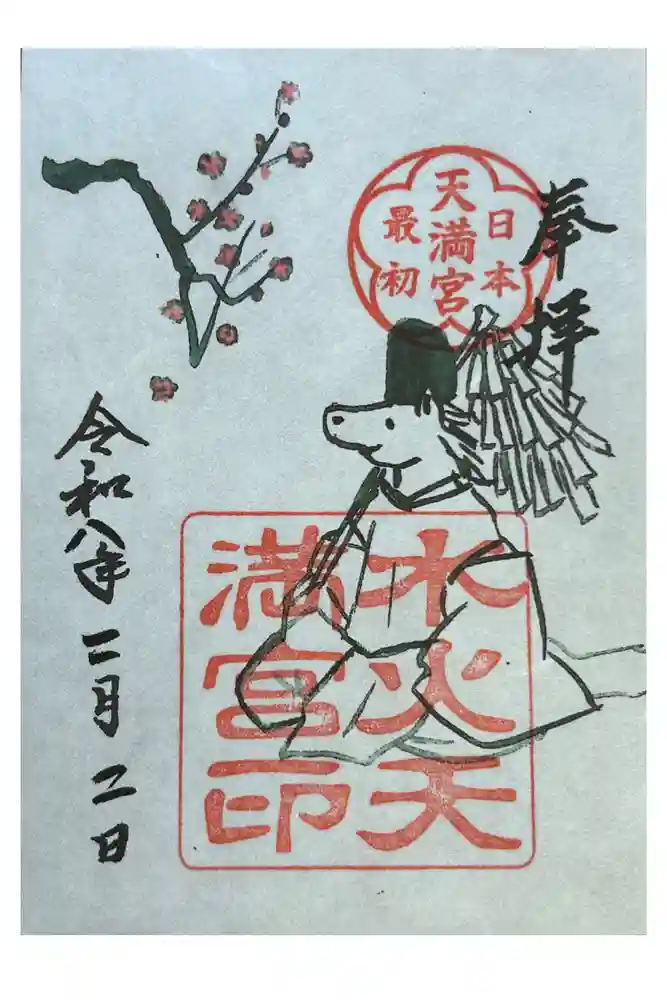 奉拝
日本
天満宮
最初
水火天
満宮印
令和八年 一月 二日